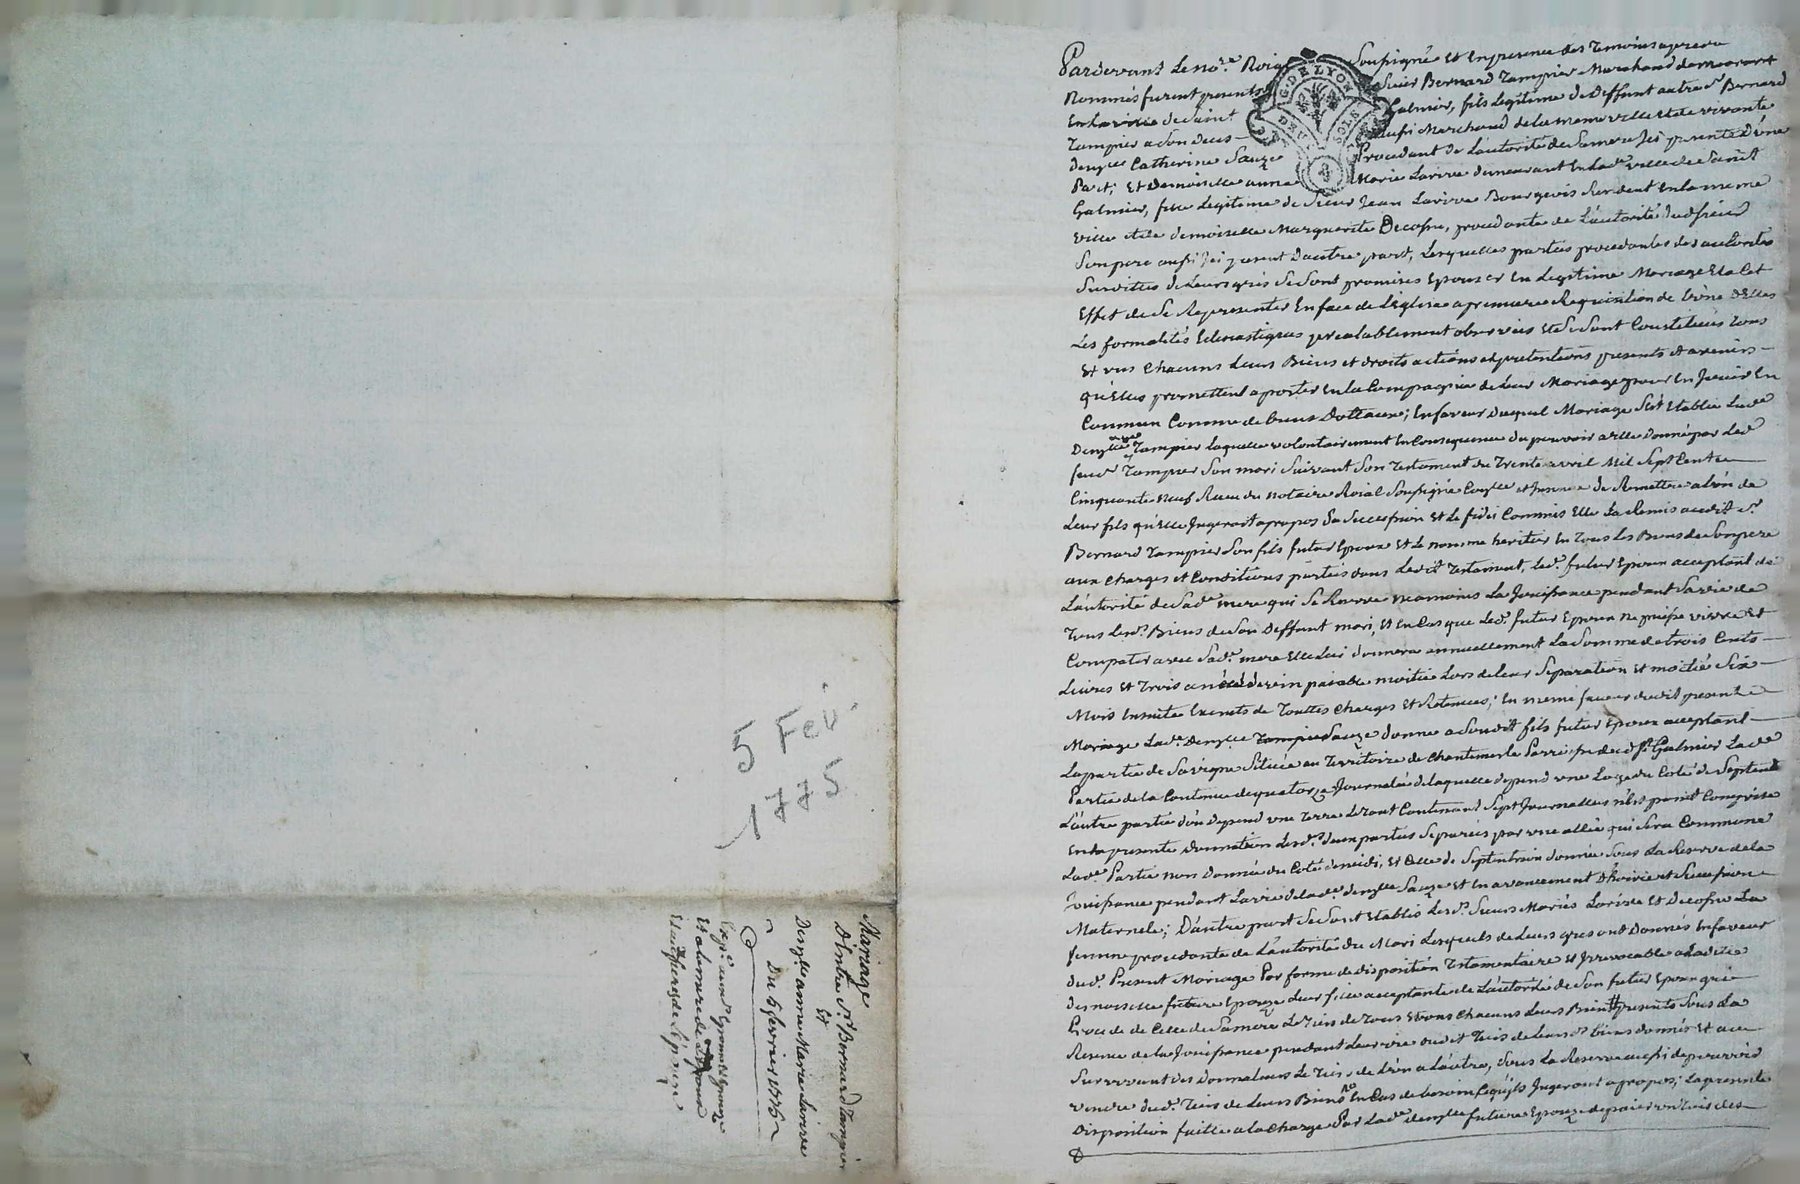 Pardevant Le no.re Roial Soussigné et En presence des Temoins apres
Nommés furent presents Sieur Bernard Tampier Marchand demeurant
En La ville de Saint Galmier, fils Legitime de Deffunt autre S.r Bernard
Tampier a Son deces aussi Marchand de la meme ville et de vivante
Dem.lle Catherine Sauze Procedant de L'autorité de Sa mere Ici presente D'une
Part; Et Demoiselle anne Marie Larive demeurant En lad.e ville de Saint
Galmier, fille Legitime de Sieur Jean Larive Bourgeois Resident En la meme
ville et de demoiselle Marguerite Decosne, procedante de L'autorité dud. sieur
Son pere aussi Ici present D'autre part, Lesquelles parties procedantes des autorités
Susdittes de Leurs grés Se Sont promises Epouser En Legitime Mariage Et a Cet
Effet de Se Representer En face de L'Eglise a premiere Requisition de L'une D'Elles
Les formalités Eclesiastiques prealablement observées et Se Sont Constitués Tous
Et uns Chacuns Leurs Biens et droits actions et pretentions presents et avenirs
qu'Elles promettent aporter En la Compagnie de Leur Mariage pour En Jouir En
Commun Comme de biens Dottaux; En faveur Duquel Mariage S'est Etablie Lad.e
Dem.lle Tampier Laquelle volontairement En Consequence du pouvoir a Elle Donné par Led.
feu S.r Tampier Son mari Suivant Son Testament du Trente avril Mil Sept Cent
Cinquante neuf Recu du notaire Roial Soussigné de Remettre a L'un de
Leur fils qu'Elle Jugeroit apropos Sa Succession Et Le fidei Commis Elle La Remis audit S.r
Bernard Tampier Son fils futur Epoux Et Le nomme heritier En Tous Les Biens de Son pere
aux Charges et Conditions portées dans Ledit Testament, Led. futur Epoux acceptant de
L'autorité de Sad.e mere qui Se Reserve neamoins La Jouissance pendant Sa vie de
Tous Lesd. Biens de Son Deffunt mari, Et En Cas que Led. futur Epoux ne puisse vivre et
Compatir avec Sad.e mere Elle Lui donnera annuellement La Somme de trois Cents
Livres Et Trois de vin paiable moitié Lors de Leur Separation Et moitié Six
Mois Ensuite Exempts de Touttes Charges Et Retenues; En meme faveur dudit present
Mariage Lad.e Dem.lle Sauze donne a Sondit fils futur Epoux acceptant
La partie de Sa vigne Située au Territoire de Chantemerle Parroisse dud. S.t Galmier Lad.e
Partie de la Contenue de quatorze Journalée de laquelle depend une Loge du Coté de Septent.
L'autre partie d'ou depend une Terre Contenant Sept Journallées n'est point Comprise
En la presente donnation Lesd. deux parties Separées par une allée qui Sera Commune
Lad.e Partie non Donnée du Coté de midi, et Celle de Septentrion donnée Sous La Reserve de la
Jouissance pendant La vie de lad.e dem.lle Sauze et En avancement D'hoirie et Succession
Maternele; D'autre part Se Sont Etablis Lesd. Sieurs Mariés Larive Et Decosne La
femme procedante de L'autorité du Mari Lesquels de Leurs gres ont Donnés En faveur
dud. Present Mariage Par forme de disposition Testamentaire et Irrevocable a Ladite
demoiselle future Epouze Leur fille acceptante de L'autorité de Son futur Epoux qui
Procede de Celle de Sa mere Le Tiers de Tous Et uns Chacuns Leurs Biens presents Sous La
Reserve de la Jouissance pendant Leur vie dudit Tiers de Leurs d. biens donnés Et au
Survivant des Donnateurs Le Tiers de L'un a L'autre, Sous La Reserve aussi de pouvoir
vendre dud. Tiers de Leurs Biens En Cas de besoin S'ils Jugeront apropos; La presente
Disposition faitte a la Charge Par Lad.e dem.lle future Epouze de paier un Tiers des
G. DE LYON
DEUX SOLS
5 Fev.
1775
Mariage
D'Entre S.r Bernard Tampier
Et
Dem.lle anne Marie Larive
Du 5 fevrier 1775